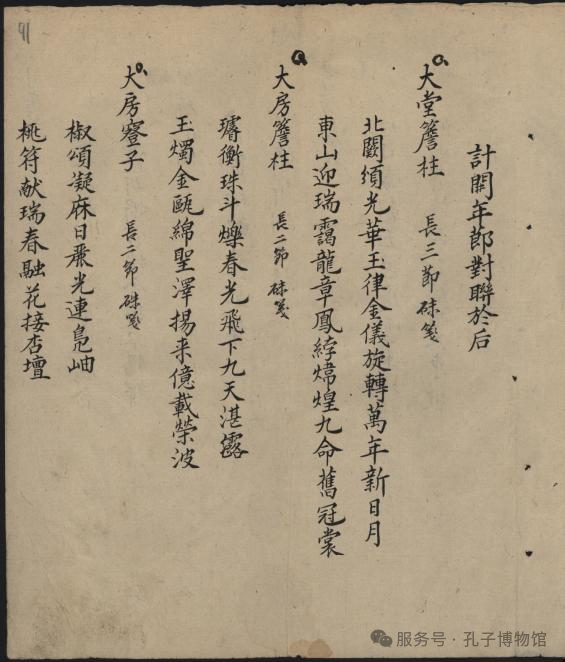 計開年節對聯於后
大堂簷柱 長三節硃箋
北闕須光華玉律金儀旋轉萬年新日月
東山迎瑞靄龍章鳳綍煒煌九命舊冠裳
大房簷柱 長二節硃箋
璿衡珠斗爍春光飛下九天湛露
玉燭金甌綿聖澤揚来億載榮波
大房寮子 長二節硃箋
椒頌凝庥日飛光連鳧岫
桃符献瑞春融花接杏壇
91
服务号·孔子博物馆